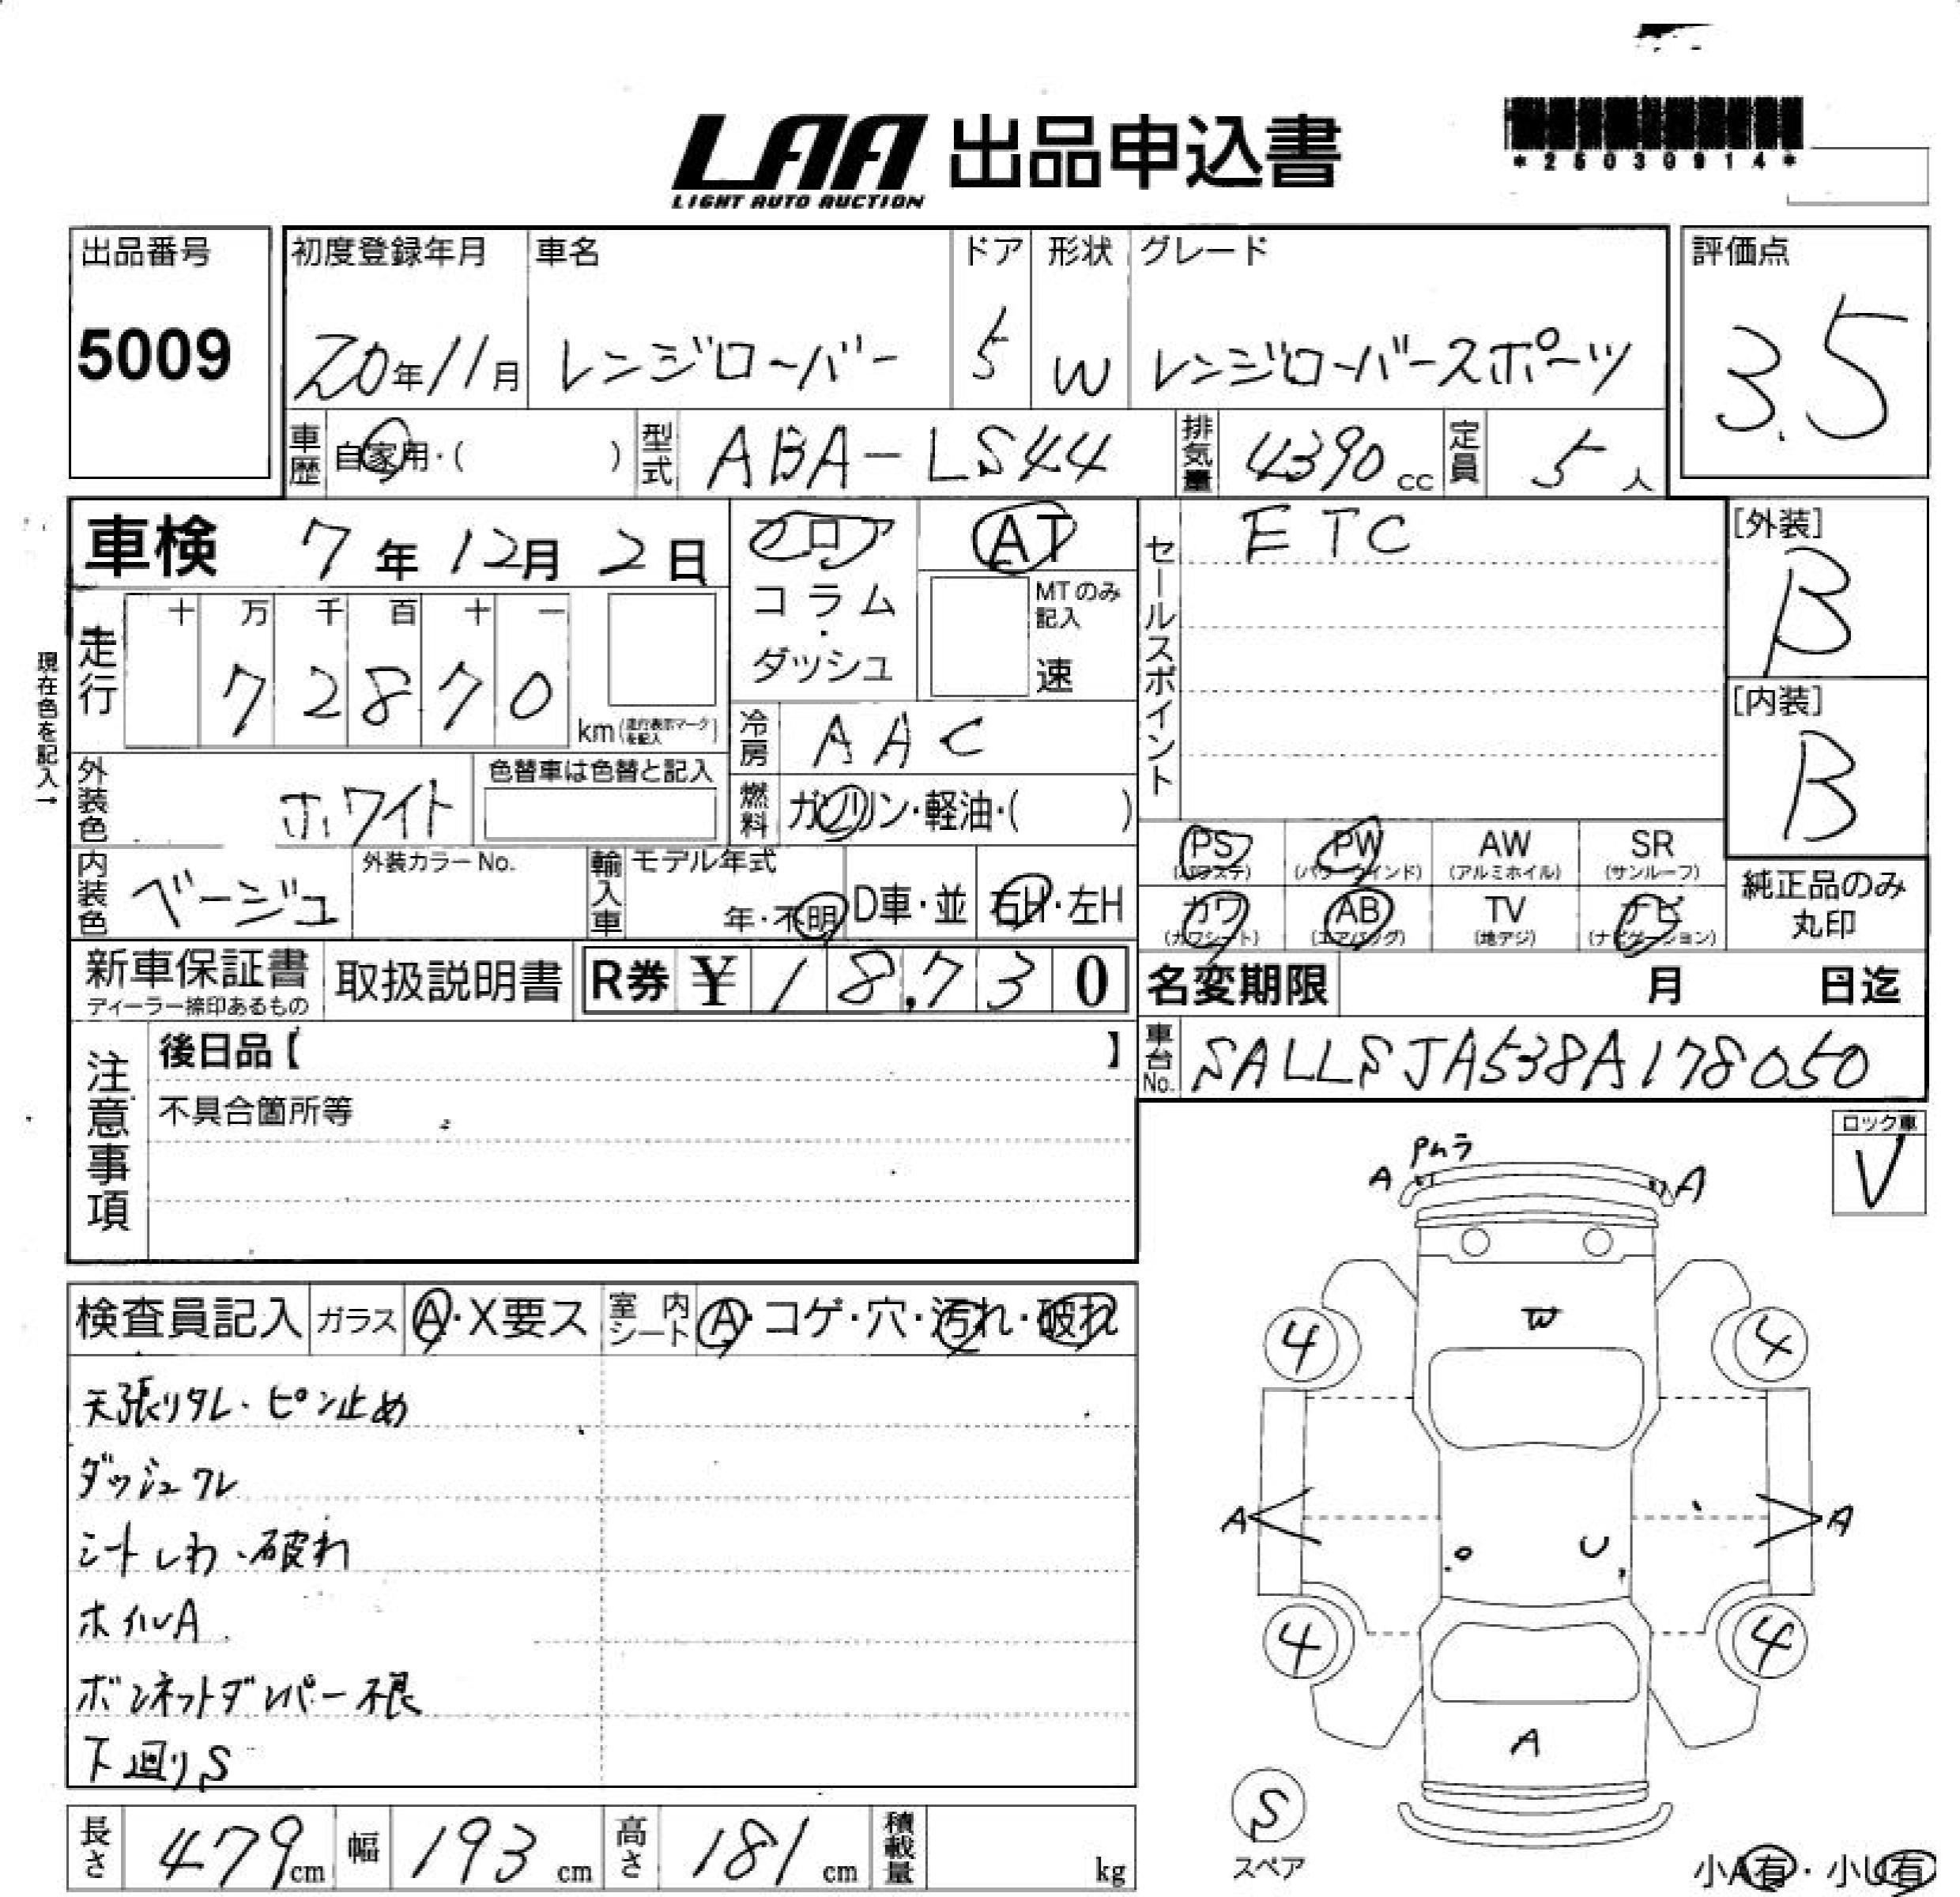 LAA 出品申込書
LIGHT AUTO AUCTION
*25030914*
出品番号 初度登録年月 車名 ドア 形状 グレード 評価点
5009 20年11月 レンジローバー 5 W レンジローバースポーツ 3.5
車歴 自家用・( ) 型式 ABA-LS44 排気量 4390cc 定員 5人
車検 7年12月2日 フロア・コラム・ダッシュ AT
MTのみ記入 速
セールスポイント ETC
[外装] B
[内装] B
現在色を記入→
走行 十 万 千 百 十 一
7 2 8 7 0 km(走行表示マークを記入)
冷房 AAC
外装色 ホワイト 色替車は色替と記入
燃料 ガソリン・軽油・( )
内装色 ベージュ 外装カラーNo. 輸入車 モデル年式 年・不明 D車・並 右H・左H
PS(パワステ) PW(パワーウインド) AW(アルミホイル) SR(サンルーフ)
カワ(カワシート) AB(エアバッグ) TV(地デジ) ナビ(ナビゲーション)
純正品のみ丸印
新車保証書 ディーラー捺印あるもの 取扱説明書 R券 ¥18,730
名変期限 月 日迄
車台No. SALLSJA538A178050
注意事項 後日品【 】
不具合箇所等
ロック車 V
検査員記入 ガラス A・X要ス 室内シート A・コゲ・穴・汚れ・破れ
天張りタレ・ピン止め
ダッシュワレ
シートしわ・破れ
ホイルA
ボンネットダンパー不良
下廻りS
A A
W
4 4
A A
U
4 4
A
S
スペア
小A有・小U有
長さ 479cm 幅 193cm 高さ 181cm 積載量 kg